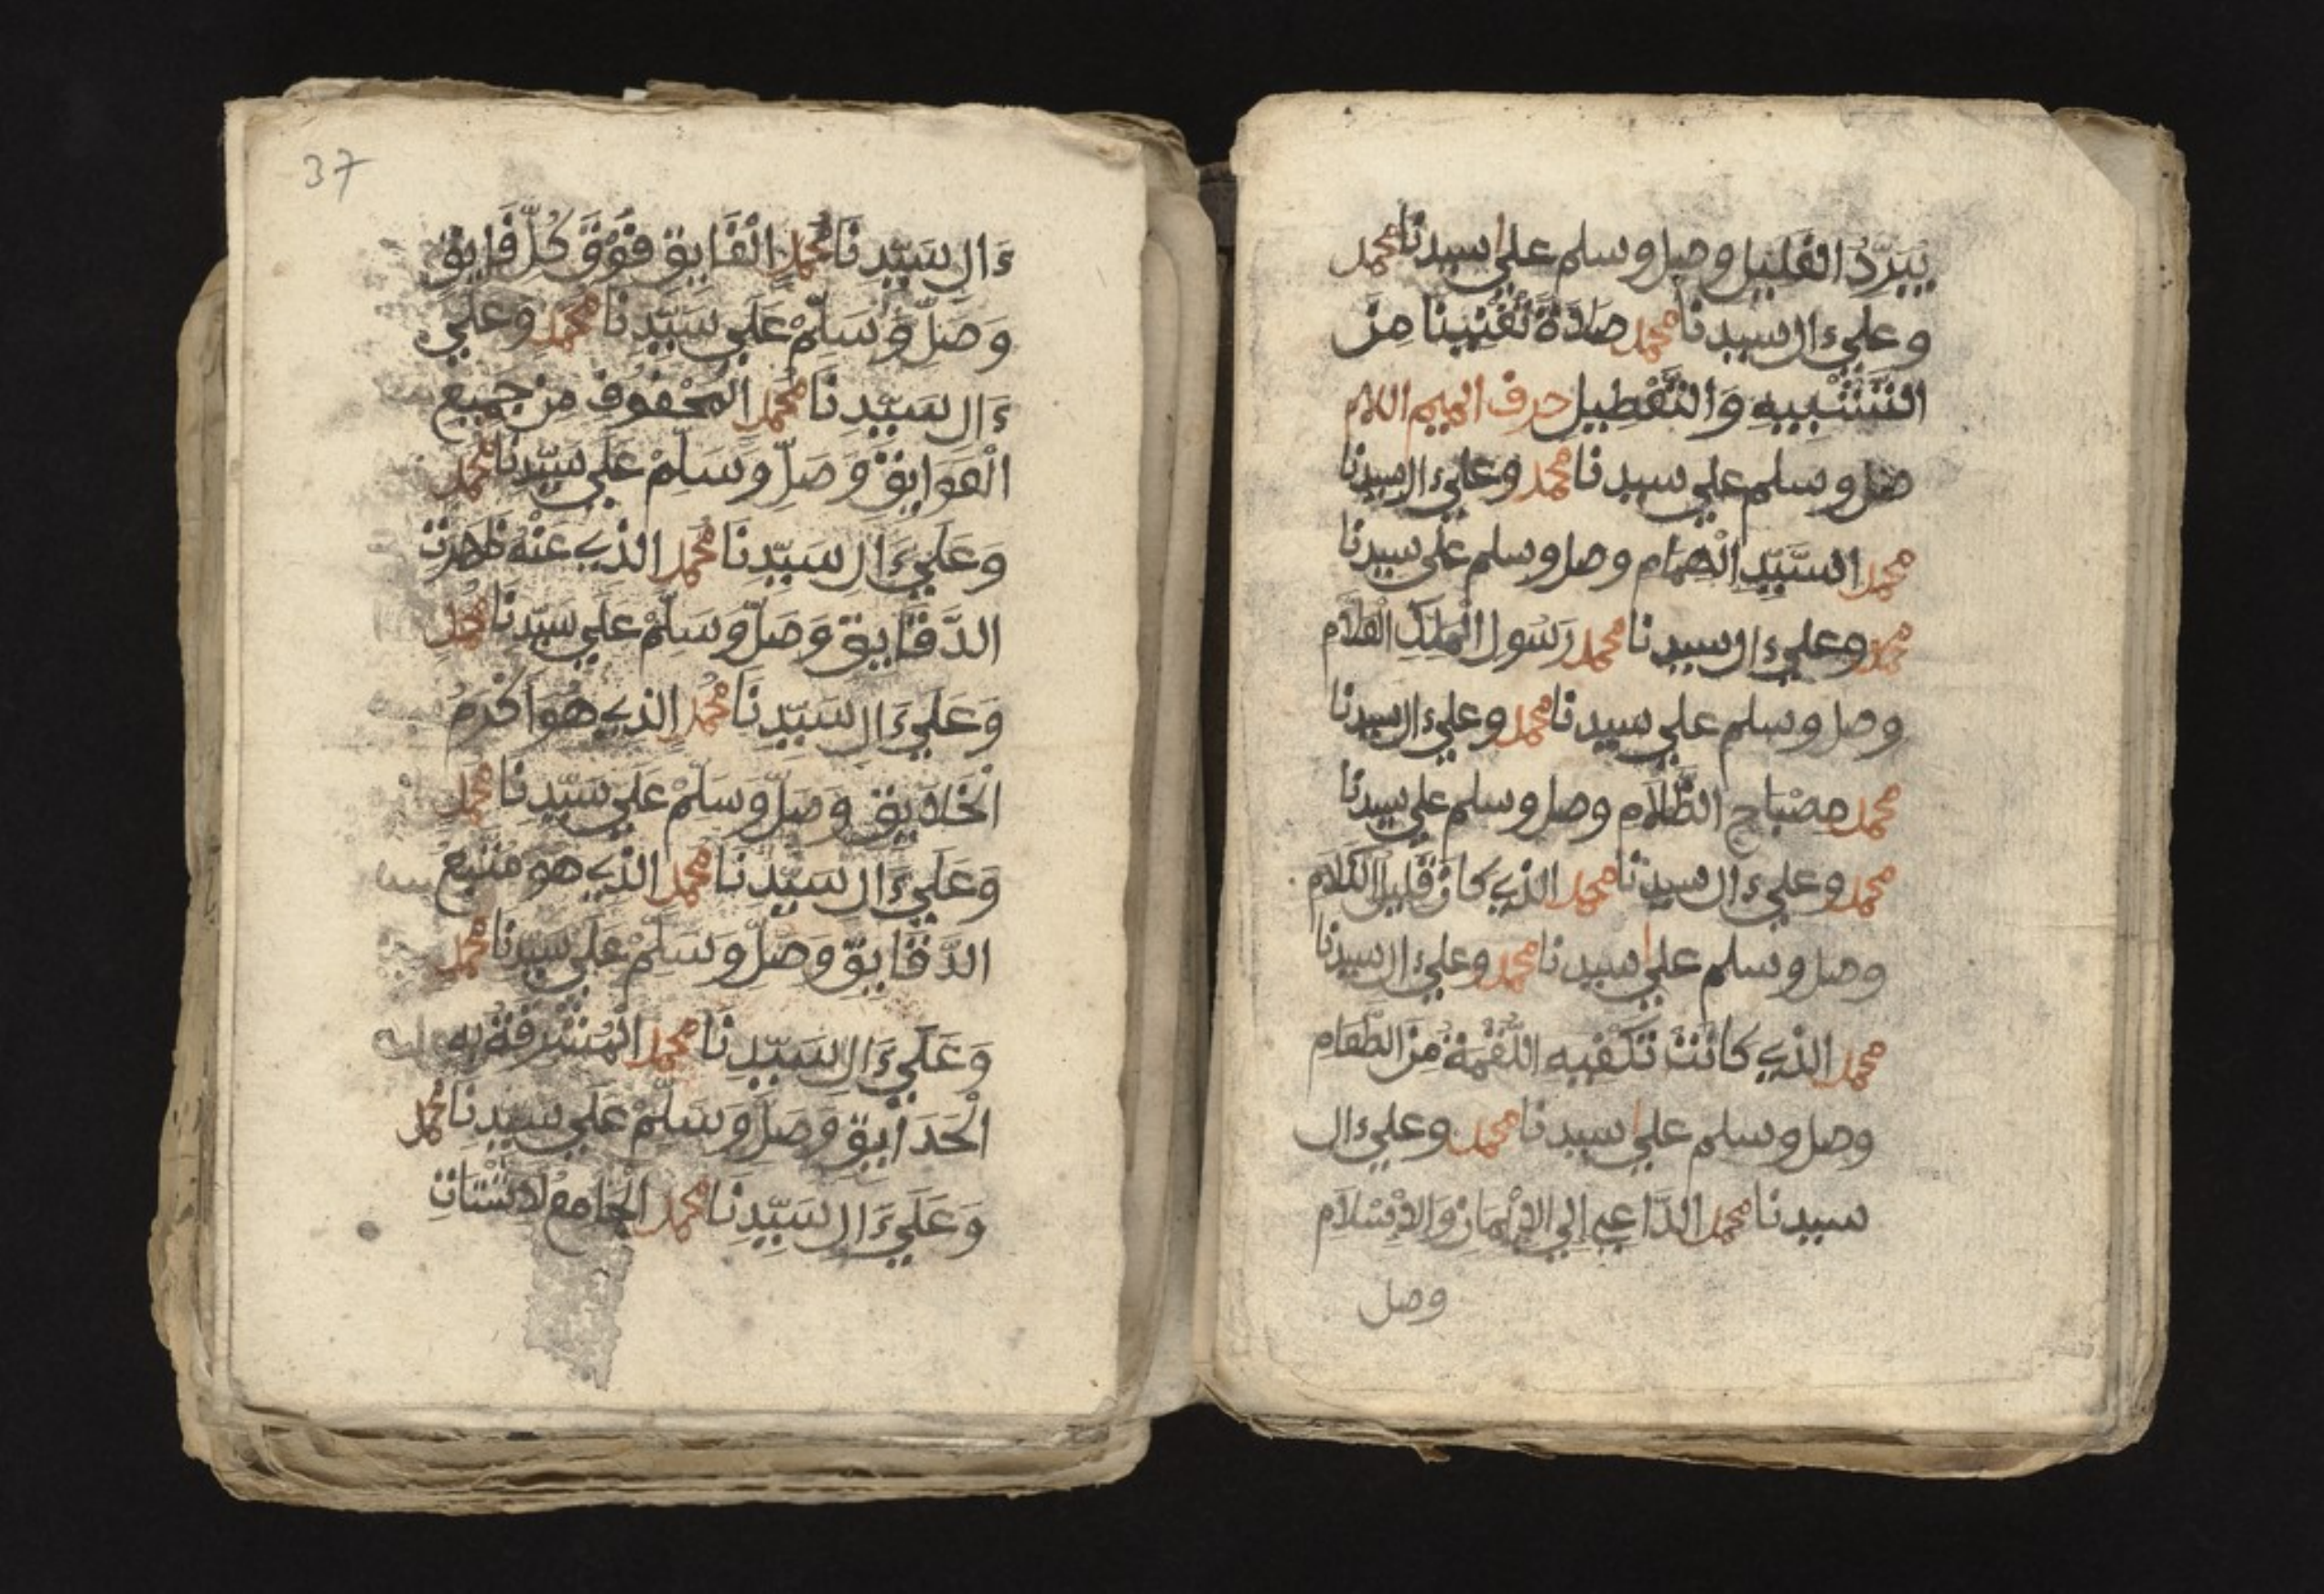 يبرد الغليل وصل وسلم على سيدنا محمد
وعلى ءال سيدنا محمد صلاة تغنينا من
التشبيه والتعطيل حرف الميم اللام
صل وسلم على سيدنا محمد وعلى ءال سيدنا
محمد السيد الهمام وصل وسلم على سيدنا
محمد وعلى ءال سيدنا محمد رسول الملك العلام
وصل وسلم على سيدنا محمد وعلى ءال سيدنا
محمد مصباح الظلام وصل وسلم على سيدنا
محمد وعلى ءال سيدنا محمد الذي كان قليل الكلام
وصل وسلم على سيدنا محمد وعلى ءال سيدنا
محمد الذي كانت تكفيه اللقمة من الطعام
وصل وسلم على سيدنا محمد وعلى ءال
سيدنا محمد الداعي إلى الإيمان والإسلام
وصل
37
ءَال سَيِّدِنَا مُحَمَّد الْفَايِق فَوْقَ كُلّ فَايِق
وَصَلّ وَسَلِّمْ عَلَى سَيِّدِنَا مُحَمَّد وَعَلَى
ءَال سَيِّدِنَا مُحَمَّد من جميع
الْعَوَايِق وَصَلّ وَسَلِّمْ عَلَى سَيِّدِنَا مُحَمَّد
وَعَلَى ءَال سَيِّدِنَا مُحَمَّد الذي عَنْهُ ظَهَرَت
الدَّقَايِق وَصَلّ وَسَلِّمْ عَلَى سَيِّدِنَا مُحَمَّد
وَعَلَى ءَال سَيِّدِنَا مُحَمَّد الذي هُوَ أَكْرَمُ
الْخَلَايِق وَصَلّ وَسَلِّمْ عَلَى سَيِّدِنَا مُحَمَّد
وَعَلَى ءَال سَيِّدِنَا مُحَمَّد الذي هو منبع
الدَّقَايِق وَصَلّ وَسَلِّمْ عَلَى سَيِّدِنَا مُحَمَّد
وَعَلَى ءَال سَيِّدِنَا مُحَمَّد الْمُشْرِقَة به
الْحَدَايِق وَصَلّ وَسَلِّمْ عَلَى سَيِّدِنَا مُحَمَّد
وَعَلَى ءَال سَيِّدِنَا مُحَمَّد الْجَامِع لأَشْتَاتِ